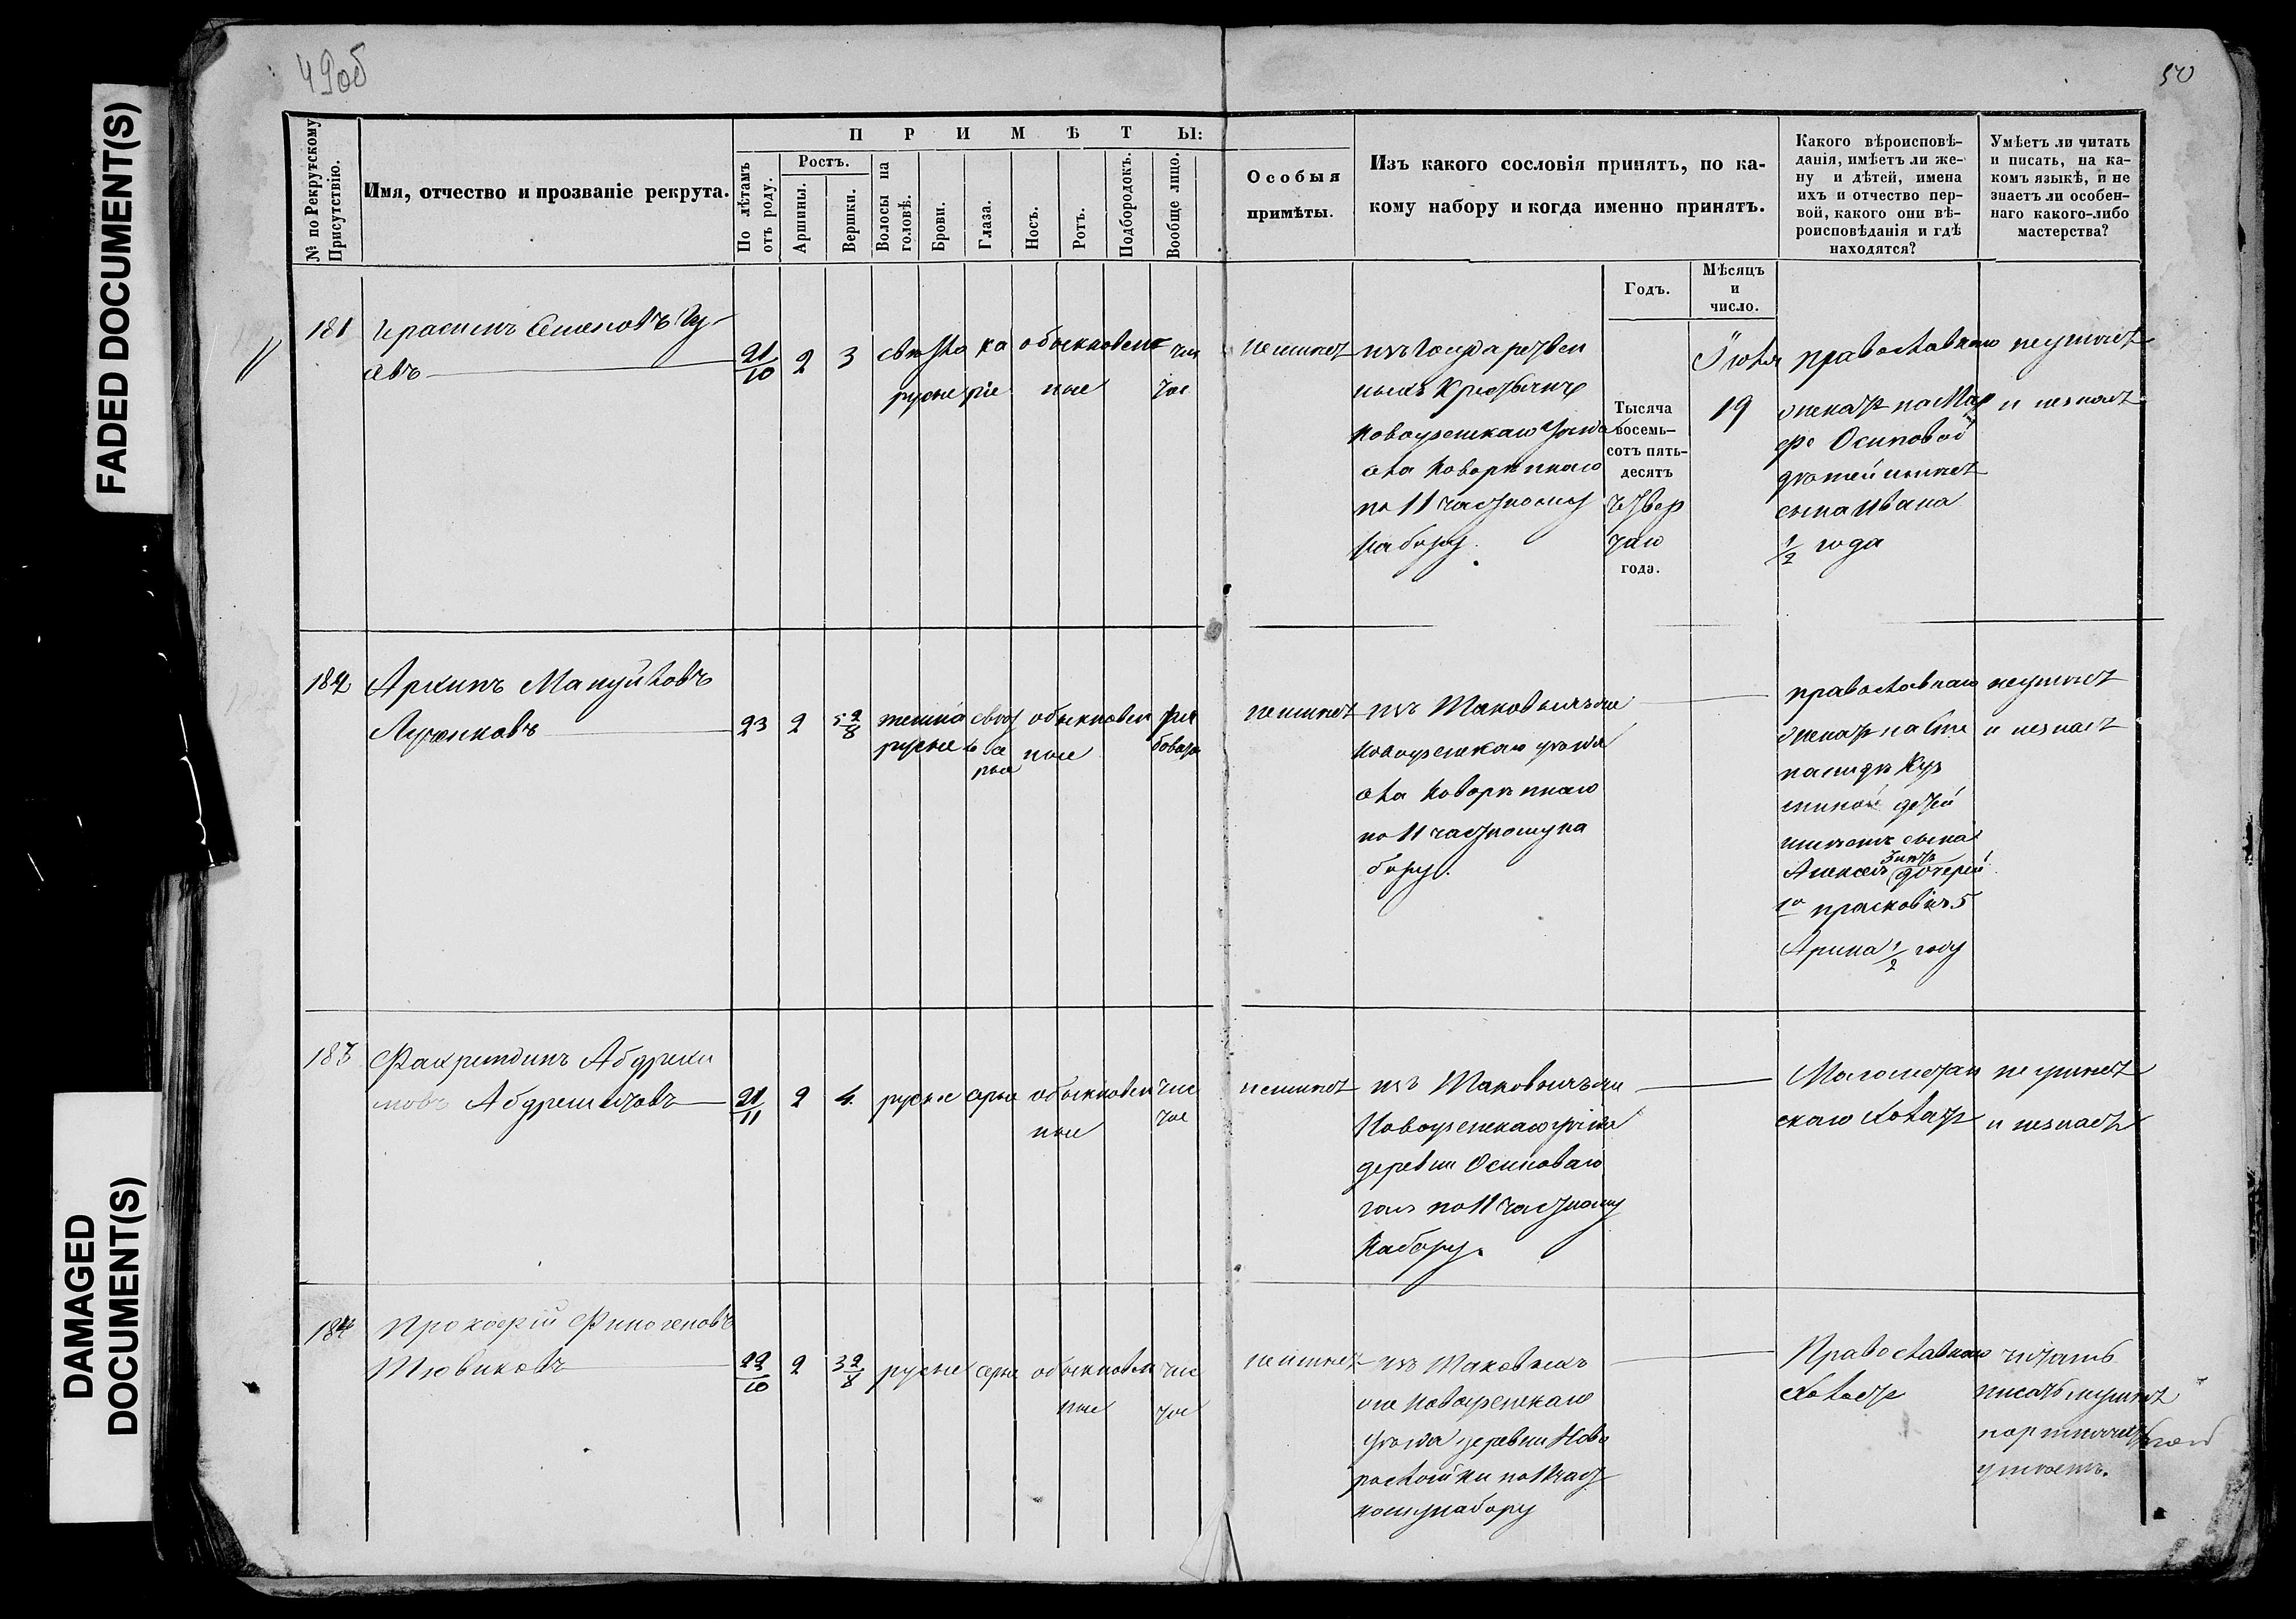 49об
50
FADED DOCUMENT(S)
DAMAGED
DOCUMENT(S)
№ по Рекрутскому
Присутствію.
Имя, отчество и прозваніе рекрута.
ПРИМѢТЫ:
По лѣтамъ
отъ роду.
Ростъ.
Аршины.
Вершки.
Волосы на
головѣ.
Брови.
Глаза.
Носъ.
Ротъ.
Подбородокъ.
Вообще лицо.
Особыя
примѣты.
Изъ какого сословія принятъ, по ка-
кому набору и когда именно принятъ.
Годъ.
Мѣсяцъ
и
число.
Какого вѣроисповѣ-
данія, имѣетъ ли же-
ну и дѣтей, имена
ихъ и отчество пер-
вой, какого они вѣ-
роисповѣданія и гдѣ
находятся?
Умѣетъ ли читать
и писать, на ка-
комъ языкѣ, и не
знаетъ ли особен-
наго какого-либо
мастерства?
181
Герасимъ Семеновъ Гу-
евъ
21/10
2
3
свѣтло
русые
ка
ріе
обыкновен
ные
чис
тое
неимѣет
изъ Государствен
ныхъ Крестьянъ
Новоузенскаго Уезда
села
по 11 частному
Набору.
Тысяча
восемь-
сотъ пять-
десятъ
четвер
таго
года.
Іюля
19
православнаго
женатъ на
Осиповой
детей имеет
сына Ивана
1/2 года
неумѣет
и незнает
182
Архипъ Мануйловъ
Лученковъ
23
2
5 2/8
темно
русые
светл
о се
рые
обыкновен
ные
ря
бовато
неимѣет
изъ Таковыхъ же
Новоузенскаго уезда
села
по 11 частному на
бору.
православнаго
женатъ на Сте
панидѣ Куз
миной детей
имѣетъ сына
Алексея
дочерей
Прасковью 5
Арина 1/2 году
неумѣет
и незнает
183
Фахритдинъ Абдреки
мовъ
21/11
2
4
русые
серые
обыкновен
ные
чис
тое
неимѣет
изъ Таковыхъ же
Новоузенскаго уезда
деревни Осиноваго
гая по 11 частному
Набору.
Магометан
скаго холостъ
не умѣет
и незнаетъ
184
Прокофій Финогеновъ
Тювиковъ
22/10
2
3 2/8
русые
серые
обыкновен
ные
чис
тое
неимѣет
изъ Таковыхъ
же Новоузенскаго
Уезда деревни Ново
по 11 част
ному набору
Православнаго
холостъ
читать
писать неумѣет
умѣетъ.